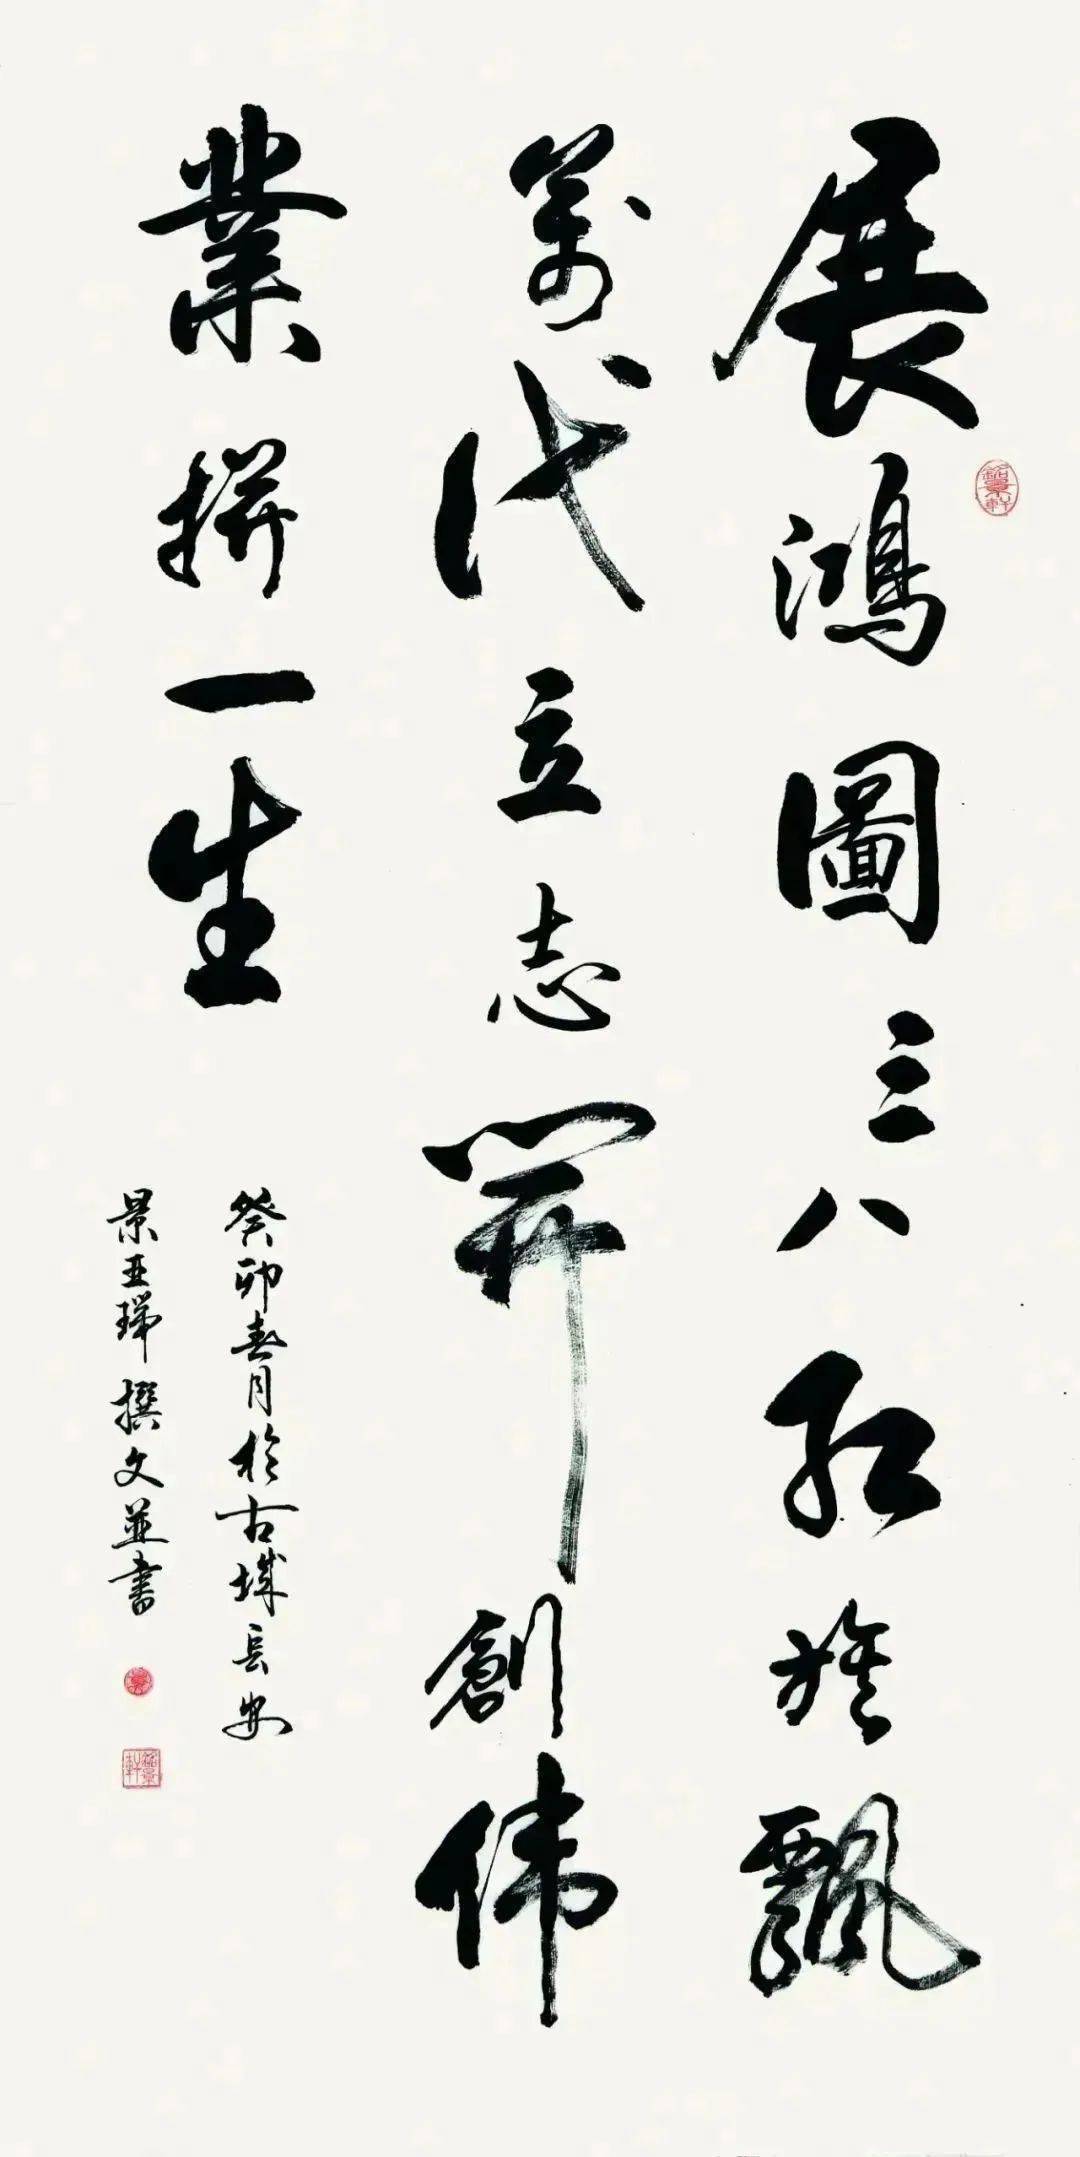 展鴻圖三八紅旌飄
萬代立志開創偉
業拼一生
癸卯春月於古城長安
景亞瑞撰文並書